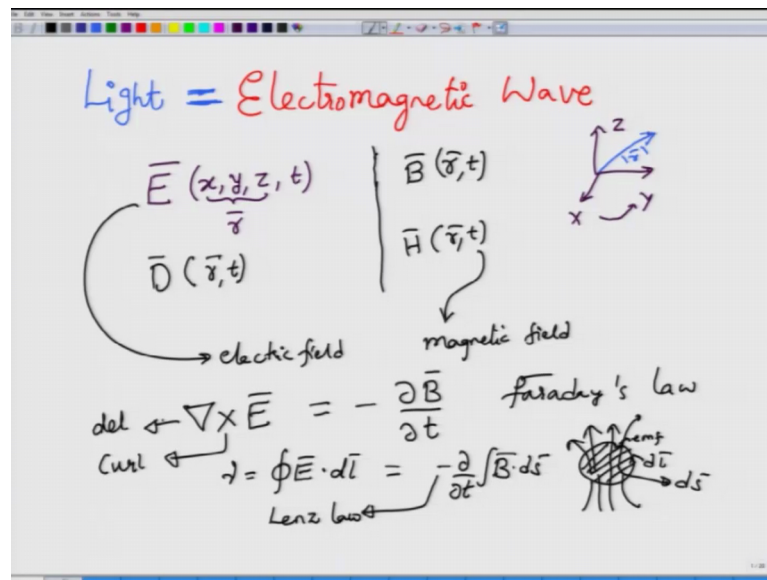 Edit View Insert Actions Tools Help
Light = Electromagnetic Wave
E̅ (x, y, z, t)
r̅
D̅ (r̅, t)
B̅ (r̅, t)
H̅ (r̅, t)
Z
r̅
X
Y
electric field
magnetic field
del
∇ × E̅ = - ∂B̅/∂t
Faraday's law
Curl
∮ E̅ · dl̅ = - ∂/∂t ∫ B̅ · ds̅
Lenz law
emf
dl̅
ds̅